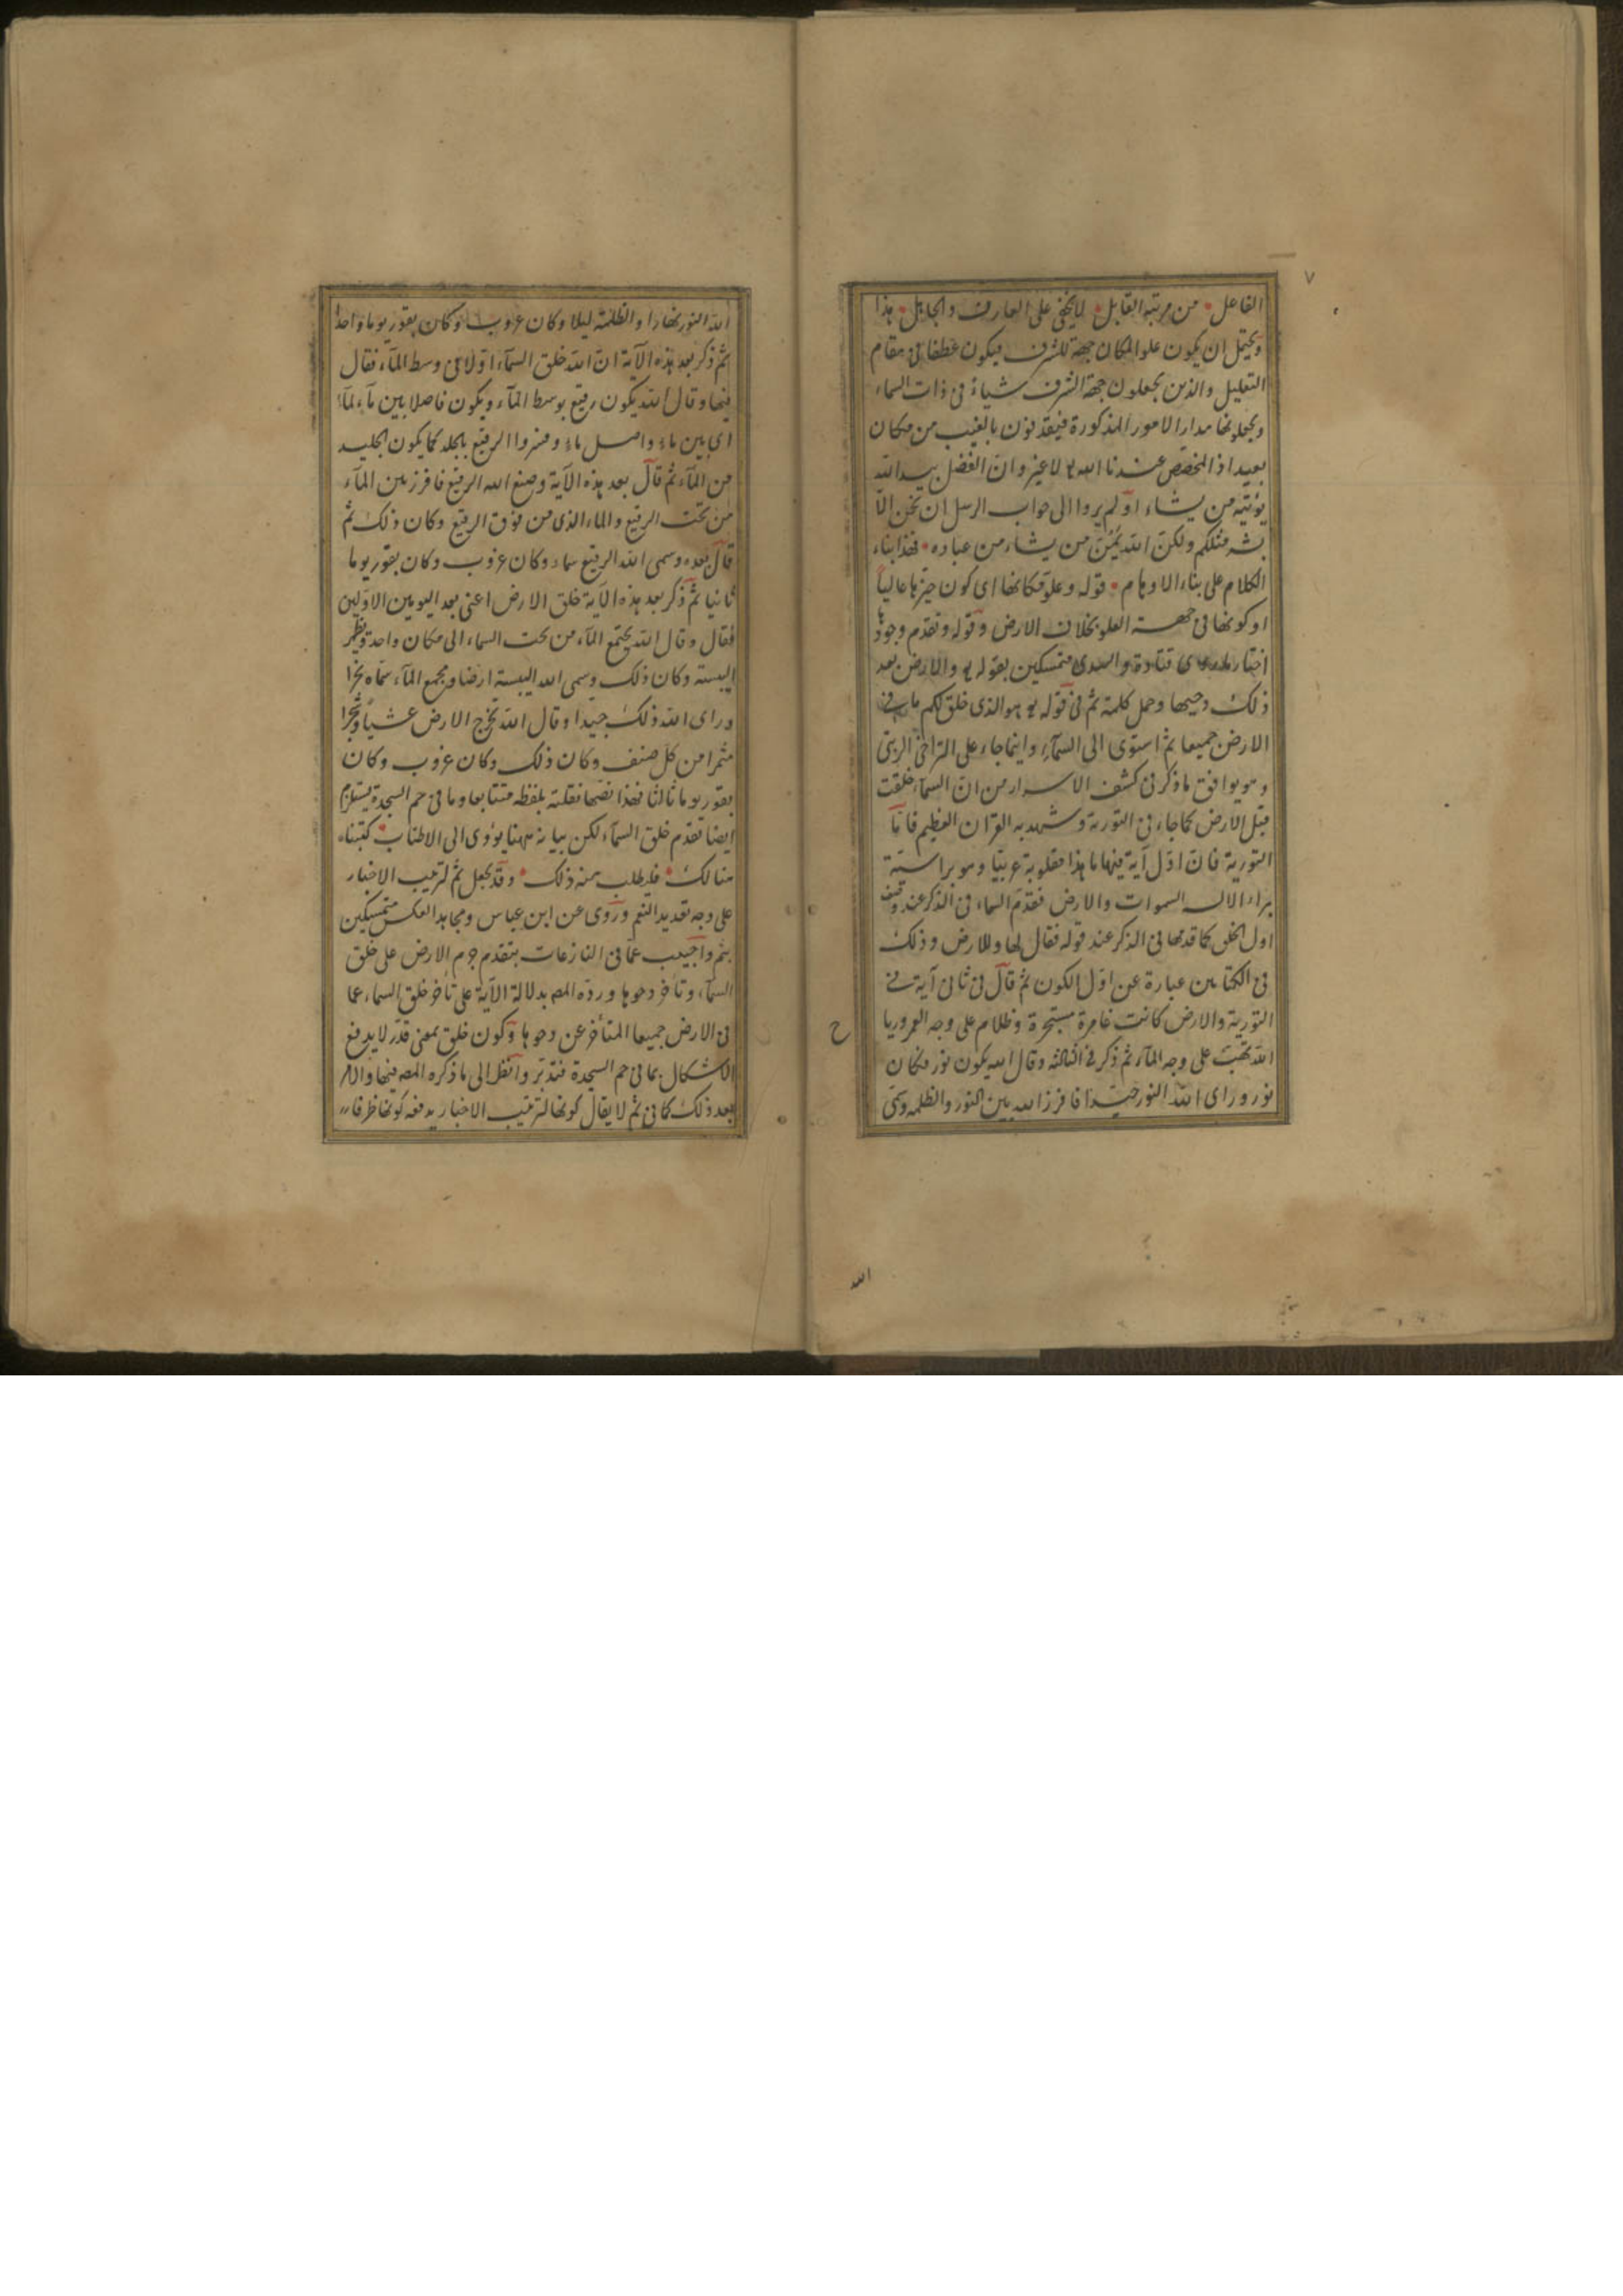 ٧
الفاعل • من مرتبه القابل • لا يخفى على العارف والجاهل • هذا
ويحتمل ان يكون علو المكان جهة للشرف فيكون عطفا فى مقام
التعليل والذين يجعلون جهة الشرف شياءً فى ذات السماء
ويجعلونها مدار الامور المذكورة فيقذفون بالغيب من مكان
بعيد اذ المخصص عندنا الله لا غير وان الفضل بيد الله
يؤتيه من يشاء اولم يروا الى جواب الرسل ان نحن الّا
بشر مثلكم ولكنّ الله يَمُنّ من يشاء من عباده • فهذا بناء
الكلام على بناء الاوهام • قوله وعلوّ مكانها اى كون حيّزها عالياً
او كونها فى جهة العلو بخلاف الارض وقوله وتقدّم وجودها
اختار قتادة والسدى متمسكين بقوله والارض بعد
ذلك دحيها وحمل كلمة ثم فى قوله هو الذى خلق لكم ما فى
الارض جميعا ثم استوى الى السمآءِ وانما جاء على التراخى الرتبى
وهو يوافق ما ذكر فى كشف الاسرار من انّ السمآء خلقت
قبل الارض كما جاء فى التورية وشهد به القرآن العظيم فامّا
التورية فانّ اوّل آية فيها ما هذا مقلوبة عربيّا وهو براسته
براء الاله السموات والارض فقدّم السماء فى الذكر عند وصف
اول الخلق كما قدمها فى الذكر عند قوله فقال لها وللارض وذلك
فى الكتابين عبارة عن اوّل الكون ثم قال فى ثانى آية فى
التورية والارض كانت غامرة مستبحرة وظلام على وجه الغمر وريا
ح
الله تهبّ على وجه المآء ثم ذكر فى الثالثه وقال الله يكون نور فكان
نور وراى الله النور جيّدا فافرز الله بين النور والظلمه وسمّى
الله
الله النور نهارا والظلمة ليلا وكان غروب وكان بقور يوما واحدا
ثم ذكر بعد هذه الآية انّ الله خلق السمآء اوّلا فى وسط المآء فقال
فيها وقال الله يكون رقيع بوسط المآء ويكون فاصلا بين مآء لمآء
اى بين ماء واصل ماء وفسروا الرقيع بالجلد كما يكون الجليد
من المآء ثم قال بعد هذه الآية وصنع الله الرقيع فافرز بين المآء
من تحت الرقيع والماء الذى من فوق الرقيع وكان ذلك ثم
قال بعده وسمى الله الرقيع سماء وكان غروب وكان بقور يوما
ثانيا ثم ذكر بعد هذه الآية خلق الارض اعنى بعد اليومين الاوّلين
فقال وقال الله يجتمع المآء من تحت السماء الى مكان واحد ويظهر
اليبسة وكان ذلك وسمى الله اليبسة ارضا ومجمع المآء سمّاه بحرا
وراى الله ذلك جيّدا وقال الله تخرج الارض عشباً وشجرا
مثمرا من كلّ صنف وكان ذلك وكان غروب وكان
بقور يوما ثالثا فهذا نصّها نقلته بلفظه متتابعا وما فى حم السجدة يستلزم
ايضا تقدّم خلق السمآء لكن بيانه ههنا يؤدى الى الاطناب • كتبناه
هنالك • فليطلب منه ذلك • وقد يجعل ثم لترتيب الاخبار
على وجه تعديد النعم وروى عن ابن عباس ومجاهد العكس متمسكين
بثم واجيب عمّا فى النازعات بتقدّم جرم الارض على خلق
السمآء وتأخر دحوها وردّه المص بدلالة الآية على تأخر خلق السماء عما
فى الارض جميعا المتأخر عن دحوها وكون خلق بمعنى قدّر لا يدفع
الاشكال بما فى حم السجدة فتدبّر وانظر الى ما ذكره المص فيها والامر
بعد ذلك كما فى ثم لا يقال كونها لترتيب الاخبار يدفعه كونها ظرفا